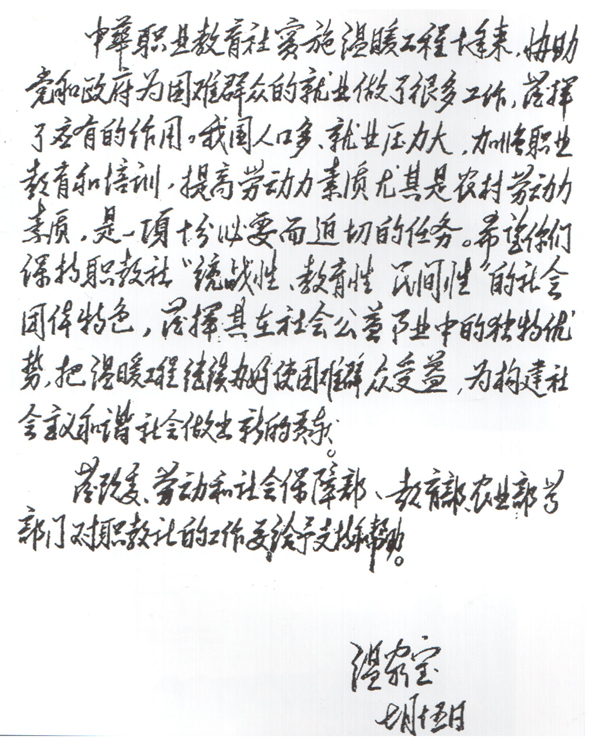 中華职业教育社实施温暖工程十年来,协助
党和政府为困难群众的就业做了很多工作,发挥
了应有的作用。我国人口多、就业压力大,加强职业
教育和培训,提高劳动力素质尤其是农村劳动力
素质,是一项十分必要而迫切的任务。希望你们
保持职教社“统战性、教育性 民间性”的社会
团体特色,发挥其在社会公益事业中的独特优
势,把温暖工程继续办好使困难群众受益,为构建社
会主义和谐社会做出新的贡献。
发改委、劳动和社会保障部、教育部、农业部等
部门对职教社的工作要给予支持和帮助。
温家宝
七月十五日